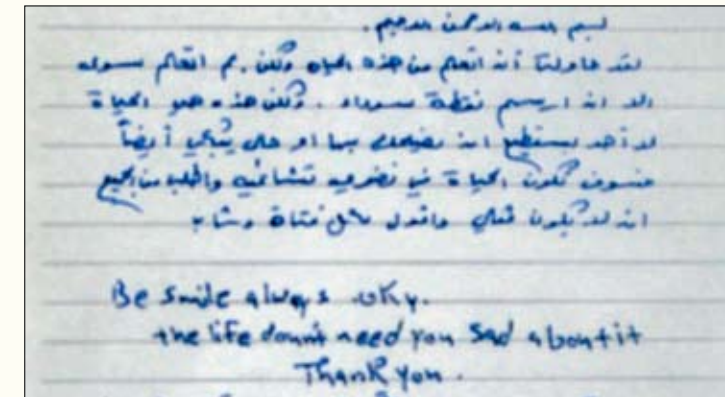 بسم الله الرحمن الرحيم.
لقد حاولت أن اتعلم من هذه الحياه ولكن لم اتعلم سوى
الا ان ارسم نقطة سوداء . ولكن هذه هي الحياة
لا أحد يستطيع ان يضحك بها او حتى يبكي أيضاً
فسوف تكون الحياة في نضري تشائميه واطلب من الجميع
ان لا يكون مثلي واقول لكل فتاة وشاب
Be smile always oky.
the life dount need you sad about it
Thank you.